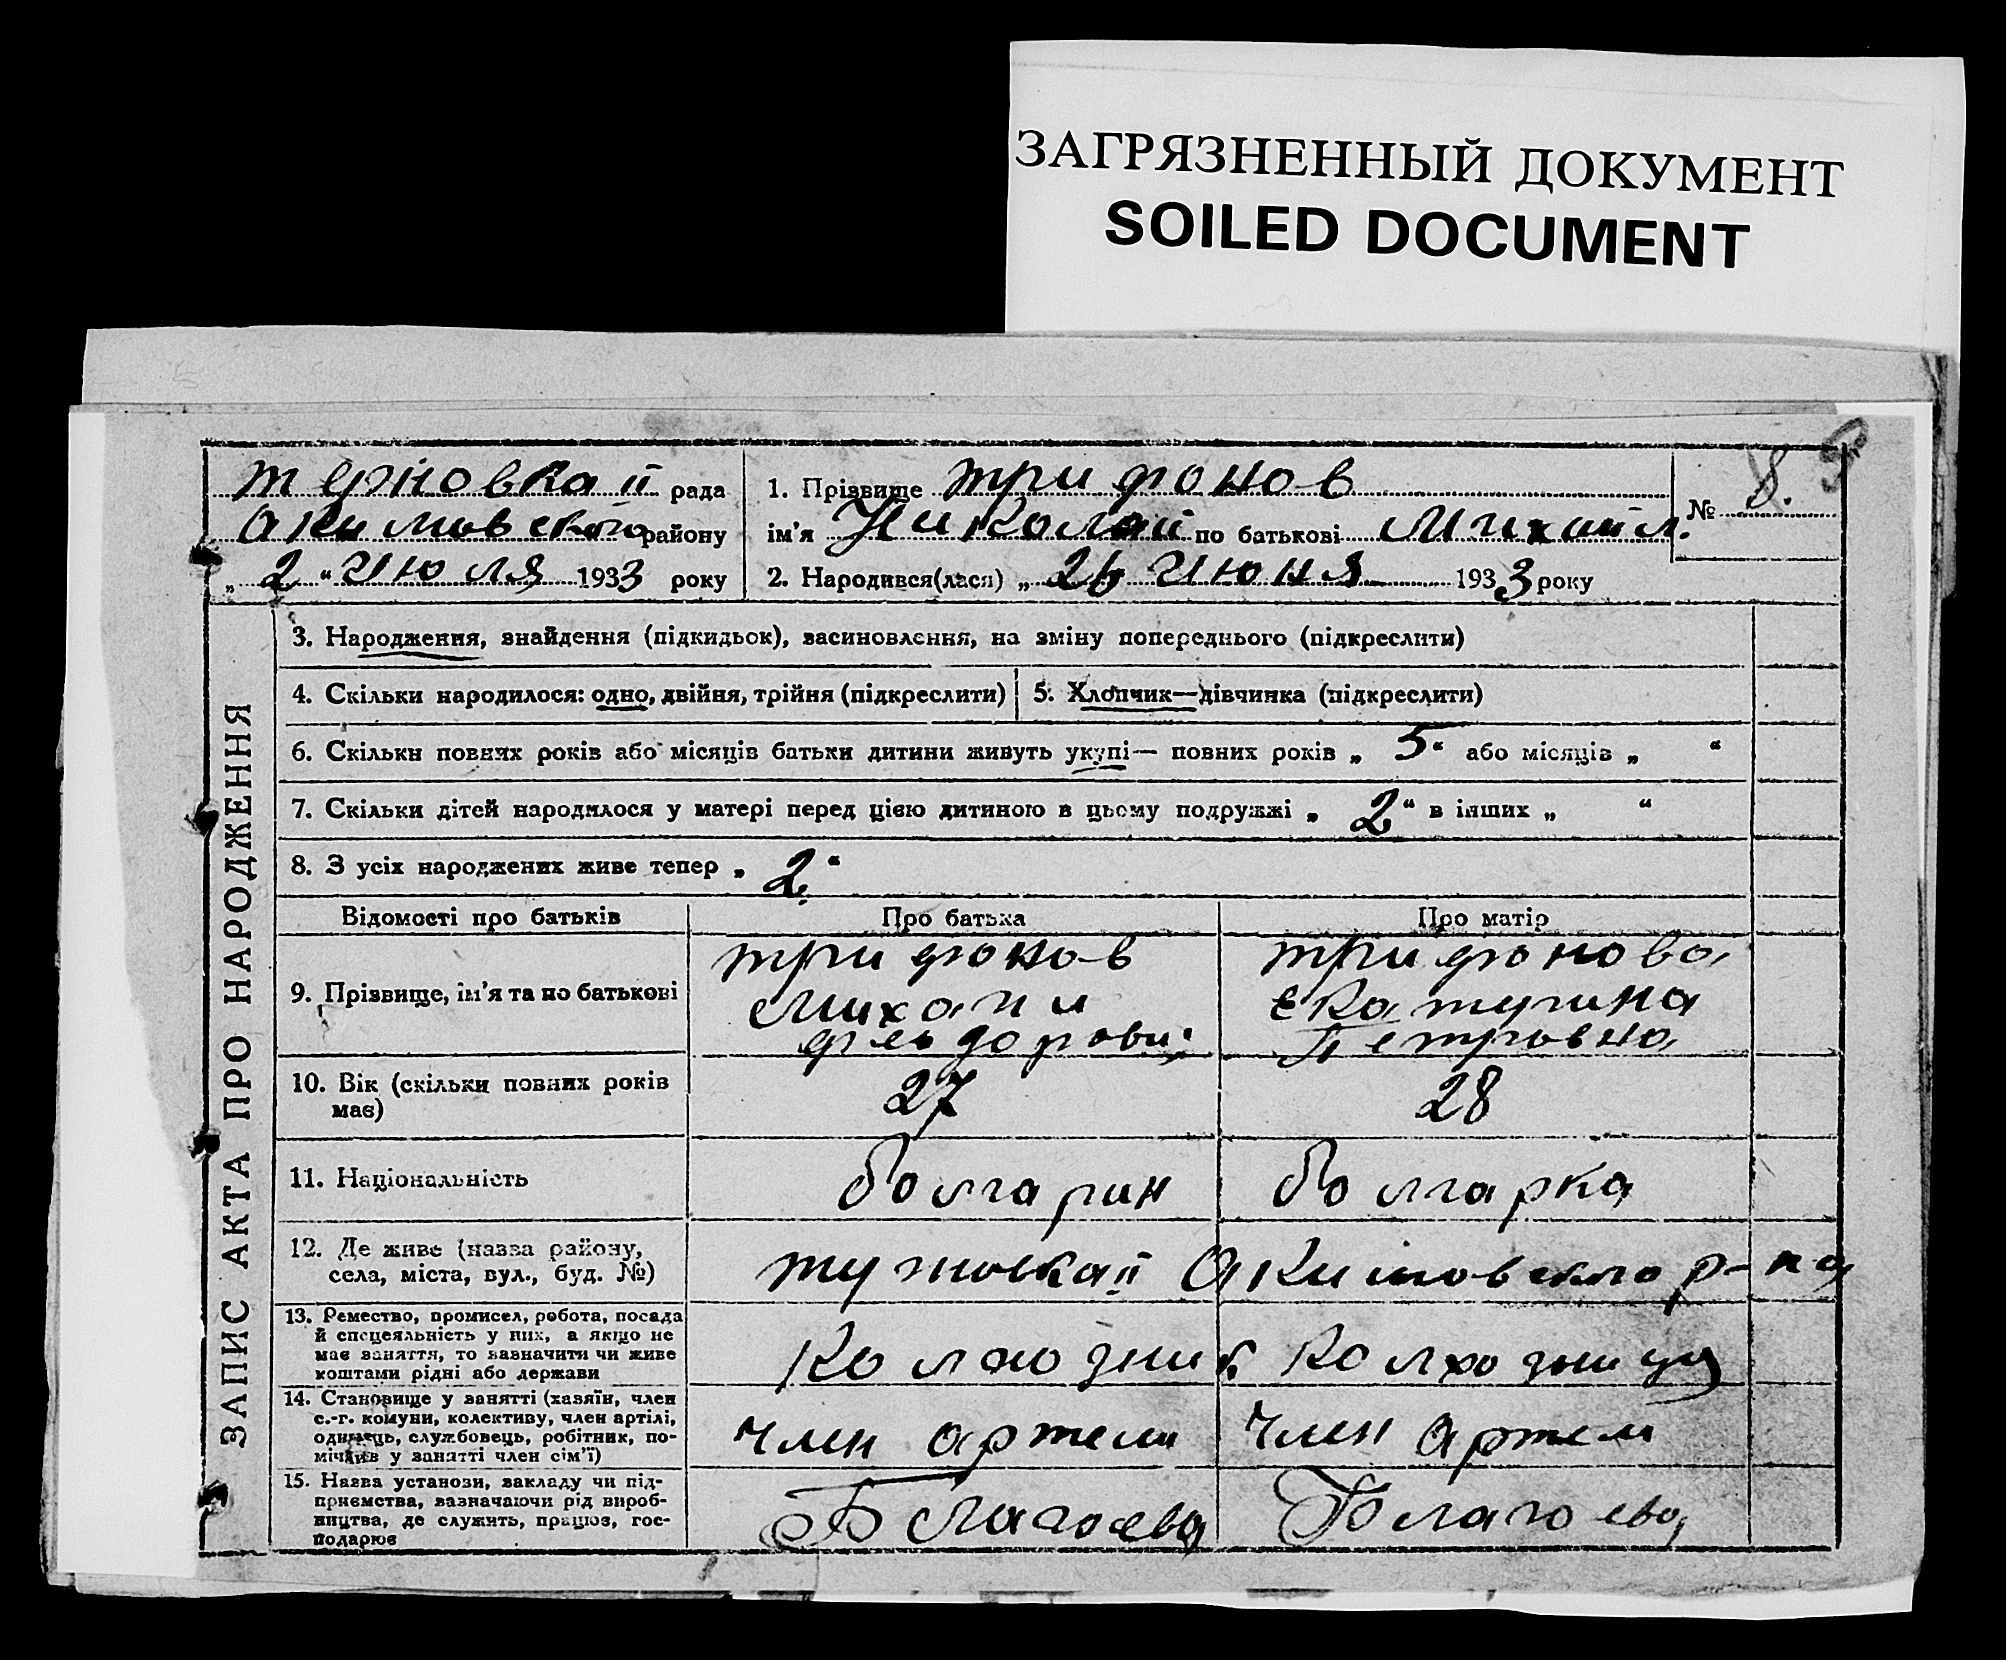 ЗАГРЯЗНЕННЫЙ ДОКУМЕНТ
SOILED DOCUMENT
терновкай рада
Акимовского району
„ 2 “ Июля 1933 року
1. Прізвище Трифонов
ім'я Николай по батькові Михайл.
2. Народився(лася) „ 26 Июня 1933 року
№ 8.
ЗАПИС АКТА ПРО НАРОДЖЕННЯ
3. Народження, знайдення (підкидьок), васиновлення, на зміну попереднього (підкреслити)
4. Скільки народилося: одно, двійня, трійня (підкреслити)
5. Хлопчик—дівчинка (підкреслити)
6. Скільки повних років або місяців батьки дитини живуть укупі— повних років „ 5 “ або місяців „ “
7. Скільки дітей народилося у матері перед цією дитиною в цьому подружжі „ 2 “ в інших „ “
8. З усіх народжених живе тепер „ 2 “
Відомості про батьків
Про батька
Про матір
9. Прізвище, ім'я та по батькові
Трифонов
Трифонова
Екатерина
Петровна
10. Вік (скільки повних років
має)
27
28
11. Національність
болгарин
болгарка
12. Де живе (назва району,
села, міста, вул., буд. №)
Акимовского р-на
13. Ремество, промисел, робота, посада
й спецеяльність у них, а якщо не
має заняття, то зазначити чи живе
коштами рідні або держави
Колхозник
Колхозница
14. Становище у занятті (хазяїн, член
с.-г. комуни, колективу, член артілі,
одинець, службовець, робітник, по-
мічник у занятті член сім'ї)
член артели
член артели
15. Назва установи, закладу чи під-
приємства, зазначаючи рід вироб-
ництва, де служить, працює, гос-
подарює
Благоева
Благоева